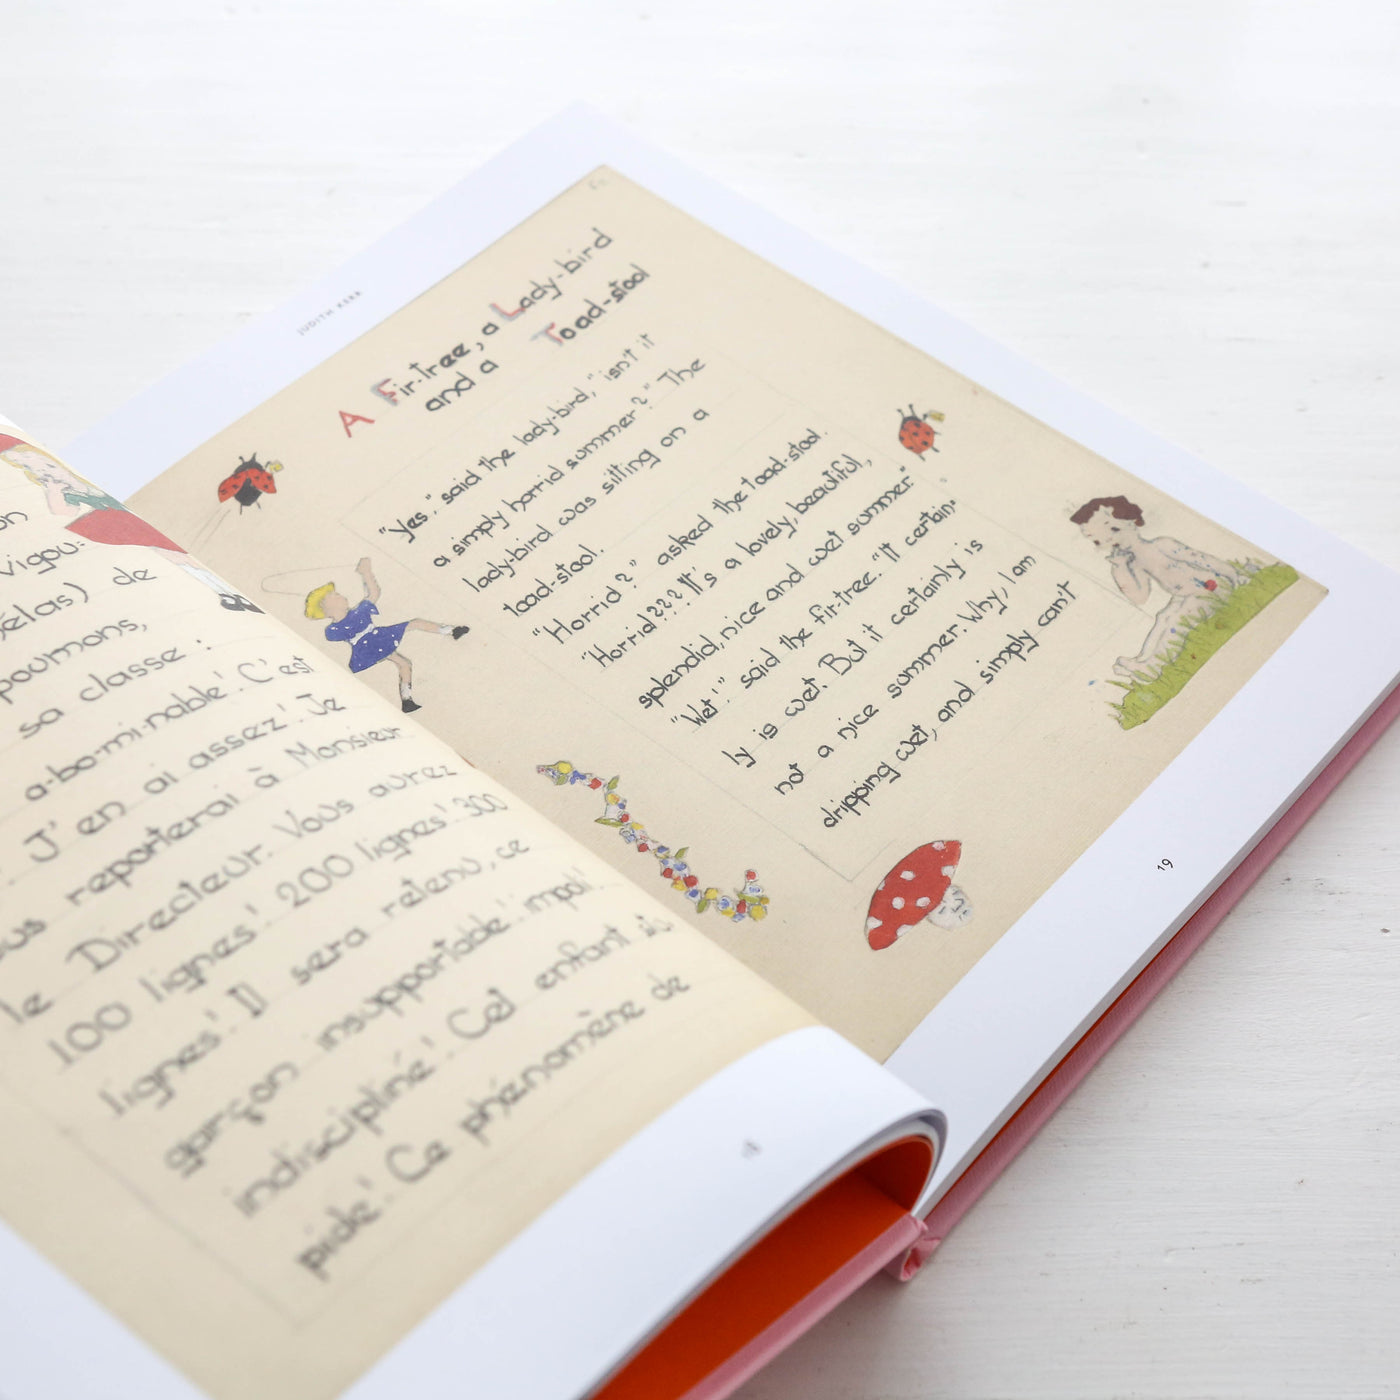 on
vigou=
élas) de
poumons,
sa classe :
a-bo-mi-nable! C'est
J'en ai assez! Je
reporterai à Monsieur
le Directeur. Vous aurez
100 lignes! 200 lignes! 300
lignes! Il sera retenu, ce
garçon insupportable! impoli!
indiscipliné! Cet enfant
pide! Ce phénomène de
JUDITH KERR
A Fir-tree, a Lady-bird
and a Toad-stool
"Yes," said the lady-bird, "isn't it
a simply horrid summer?" The
lady-bird was sitting on a
toad-stool.
"Horrid?" asked the toad-stool.
"Horrid??? It's a lovely, beautiful,
splendid, nice and wet summer."
"Wet!" said the fir-tree. "It certain-
ly is wet. But it certainly is
not a nice summer. Why, I am
dripping wet, and simply can't
19